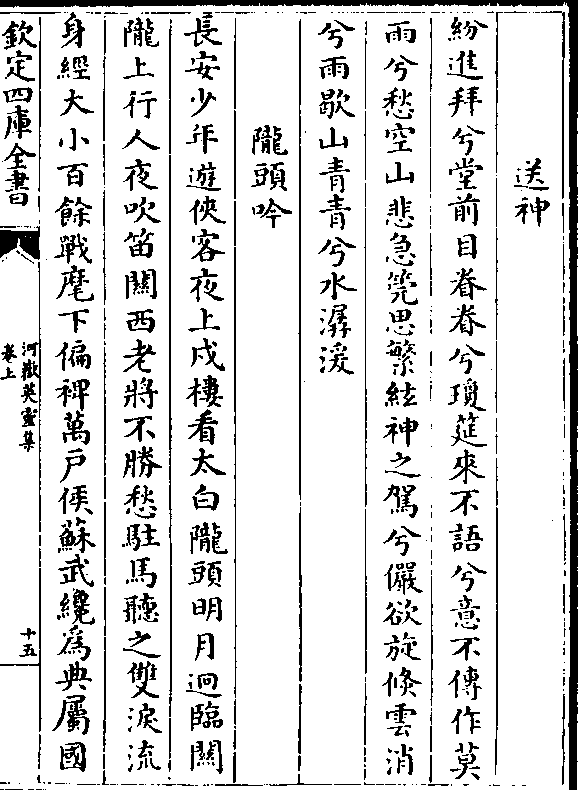 送神
紛進拜兮堂前目眷眷兮瓊筵來不語兮意不傳作莫
雨兮愁空山悲急筦思繁絃神之駕兮儼欲旋倐雲消
兮雨歇山青青兮水潺湲
隴頭吟
長安少年遊俠客夜上戍樓看太白隴頭明月迥臨關
隴上行人夜吹笛關西老將不勝愁駐馬聽之雙淚流
身經大小百餘戰麾下偏裨萬戶侯蘇武纔為典屬國
欽定四庫全書
河嶽英靈集
卷上
十五